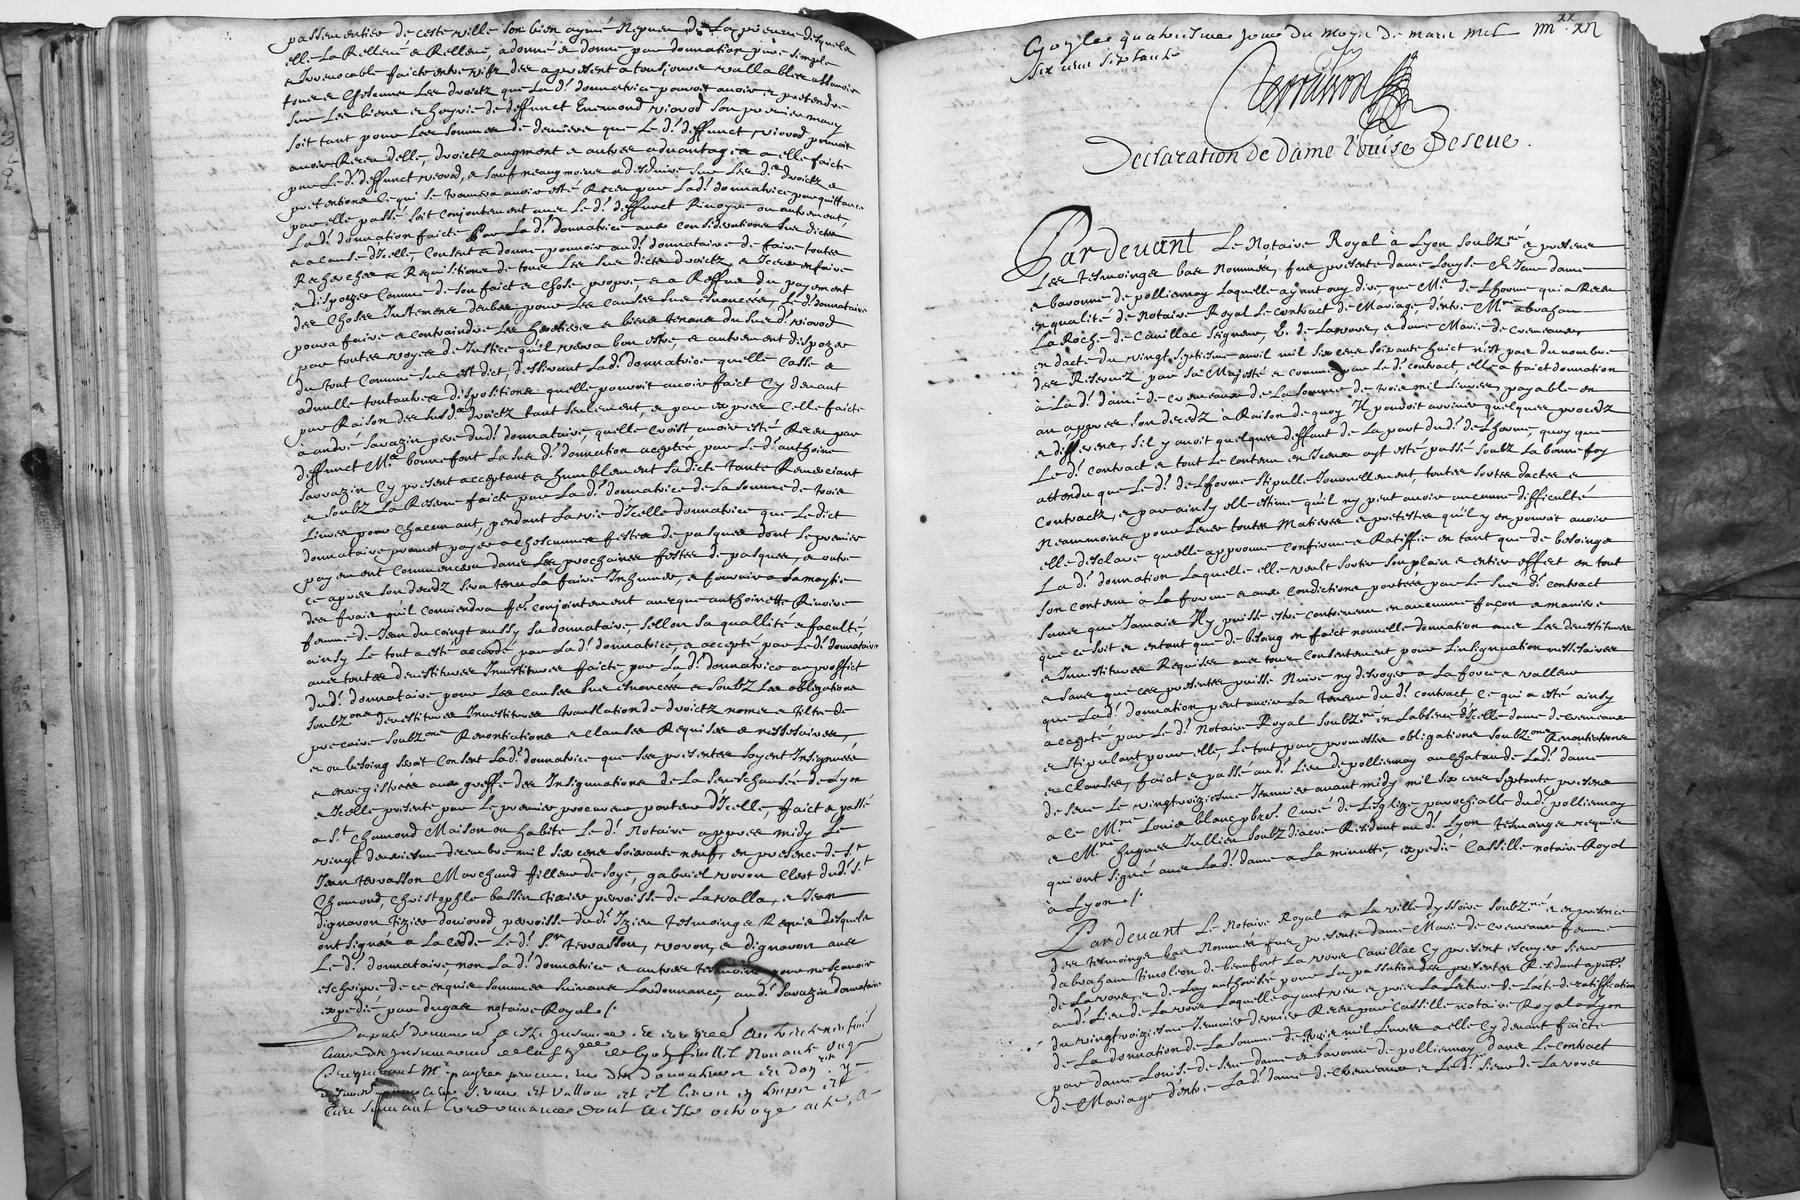 passementier de ceste ville son bien aymé Nepveu de La prieure desquels
elle La Relleue e Relleue, a donné e donne par donnation pure simple
e Irrevocable faicte entre vifz des a present a tousjours vallables assavoir
tous e Chascuns Les droictz que La d. donnatrice pouvoit avoir e pretendre
sur Les biens e hoyrie de deffunct Enemond viovod son premier mary
soit tant pour Les sommes de deniers que Le d. deffunct viovod pouvoit
avoir Receu delle, droictz augment e autres advantages a elle faicts
par Le d. deffunct viovod, e sauf neaugmoins a desduire sur Les d. droictz e
pretentions Ce qui se trouvera avoir esté Receu par La d. donnatrice par quittance
par elle passé soit conjointement avec Le d. deffunct Rivoyre ou autrement
La d. donnation faicte par La d. donnatrice aux considerations sus dictes
e a cause d'Icelle, Consent e donne pouvoir au d. donnataire de faire toutes
Recherches e Requisitions de tous Les sus dicts droictz, e Iceux en faire
e disposer Comme de son faict e Chose propre, e a Reffus du payement
des Choses Justement deubes pour Les causes sus enoncées, Le d. donnataire
pourra faire e contraindre Les heritiers e biens tenans du sus d. viovod
par toutes voyes de Justice qu'il verra bon estre, e autrement disposer
du tout Comme sus est dict, dessirant La d. donnatrice quelle Casse e
adnulle toutautres dispositions quelle pouvoit avoir faict Cy devant
par Raison des susd. droictz tant seulement, e par expres Celle faicte
a andré Savazin pere dud. donnataire, quelle Croist avoir esté Receu par
deffunct Me. bonnefont La sus d. donnation aceptée par Le d. anthoine
Savvazin Cy present acceptant e humblement sa dicte tante Remerciant
e soubz La Reserve faicte par La d. donnatrice de La somme de trois
Livres pour Chacun ant, pendant La vie d'Icelle donnatrice que Ledict
donnataire promet payer a chascunnes festes de pasques dont Le premier
payement Commencera dans Les prochaines festes de pasques, e outre
ce apres son decedz sera tenu La faire Inhumer, e fournir a La moytie
des frais qu'il conviendra fre. conjointement avecque anthoinette Rivoire
femme de Jean du coingt aussy sa donnataire, sellon sa quallité e faculté,
ainsy Le tout a esté accordé par La d. donnatrice, e accepté par Le d. donnataire
avec toutes devestitures Investitures faicte par La d. donnatrice au proffict
du d. donnataire pour Les causes sus enoncées e soubz Les obligations
soubz.ons devestitures Investitures translation de droictz noms e tiltre de
precaire soubz.ons Renontiations e clauses Requises e nessesaires,
e ou besoing seroit Consent La d. donnatrice que Les presentes soyent Insignuées
e enregistrées aux greffe des Insignuations de La seneschaussée de Lyon
e Icelle presente par Le premier procureur porteur d'Icelle, faict e passé
a St. Chamond Maison ou habite Le d. Notaire appres midy Le
vingt deuxiesme decembre mil six cens soixante neuf, en presence de Sr.
Jean terrasson Marchand filleur de soye, gabriel voron Clerc dud. St.
Chamond, Christophle bassin tixier parroisse de Lavalla, e Jean
dignaron tizier douiovod parroisse du d. Izieu tesmoings Requis Lesquels
ont signés a La cedde Le d. Sr. terrasson, voron, e dignaron avec
Le d. donnataire non La d. donnatrice e autres tesmoins pour ne scavoir
escripre de ce enquis sommés suivant Lordonnance, au d. Savazin donnataire
expedié par dugas notaire Royal /.
Cejourdhuy quatriesme jour du Moys de mars mil
six cens septante
IIIIxx XII
Declaration de Dame Louise De seve.
Pardevant Le Notaire Royal à Lyon soubz.né e presens
Les tesmoings bas Nommés, fut presente dame Louyse de seve dame
e baronne de polliennay Laquelle ayant ouy dire, que Me. de Lhorme qui a Receu
en qualité de Notaire Royal Le contract de Mariage, dentre Mre. abraham
La Roche de Canillac seigneur, B. de Larovere, e dame Marie de cremeaux,
en dacte du vingt septiesme avril mil six cens soixante huict n'est pas du nombre
des Reservez par sa Majesté e comme par Le d. contract, elle a faict donnation
à La d. dame de Cremeaux de La somme de trois mil Livres payable en
an appres son decedz à Raison de quoy Il pouvoit arriver quelques procedz
e differens, s'il y avoit quelques deffaut de La part du d. de Lhorme, quoy que
Le d. contract e tout Le contenu en Iceux ayt esté passé soubz La bonne foy
attendu que Le d. de Lhorme stipulle Journellement, toutes sortes dactes e
contractz, e par ainsy elle estime qu'il ny peut avoir aucunne difficulté
Neammoins pour Lever toutes Matieres e pretextes qu'il y en pouvoit avoir
elle desclare quelle approuve confirme e Ratiffie en tant que de besoings
La d. donnation Laquelle elle veult sortir son plain e entier effect en tout
son contenu à La forme e aux conditions portées par Le sus d. contract
sans que Jamais Il y puisse estre contrevenu en aucunne façon e maniere
que ce soit e entant que de besoing en faict nouvelle donnation avec Les devestitures
e Investitures Requises avec tous Consentement pour L'insignuation nessesaires
e sans que ces presentes puisse Nuire ny desroger a La force e valleur
que La d. donnation peut avoir La teneur du d. contract Ce qui a esté ainsy
accepté par Le d. Notaire Royal soubz.né en Labsence d'Icelle dame de Cremeaux
e stipulant pour elle, Le tout par promesses obligations soubz.ons Renontiations
e clauses, faict e passé au d. Lieu de polliennay au chateau de La d. dame
de seve Le vingtroiziesme Jeanvier avant midy mil six cens septante presens
a ce Mre. Louis blanc pbre. Curé de Lesglize parochialle du d. polliennay
e Mre. hugues Jullien soubz diacre Residant au d. Lyon tesmoings requis
qui ont signé avec La d. dame a La minutte, expedié Cassille notaire Royal
à Lyon /.
Pardevant Le Notaire Royal en La ville dyssoire soubz.né e en presence
des tesmoings bas Nommés fut presente dame Marie de Cremeaux femme
dabraham timoleon de beaufort La rovere Canillac Cy present escuyer sieur
de Larovere, e de Luy authorisée pour La passation des presentes Residant a pnt.
au d. Lieu de Larovere Laquelle ayant veu e pris La Lecture de Lacte de ratiffication
du vingtroiziesme Jeanvier dernier Receu par Cassille notaire Royal a Lyon
de La donnation de La somme de trois mil Livres a elle Cy devant faicte
par dame Louise de seve dame e baronne de polliennay dans Le contract
de Mariage d'entre La d. dame de Cremeaux e Le d. sieur de Larovere